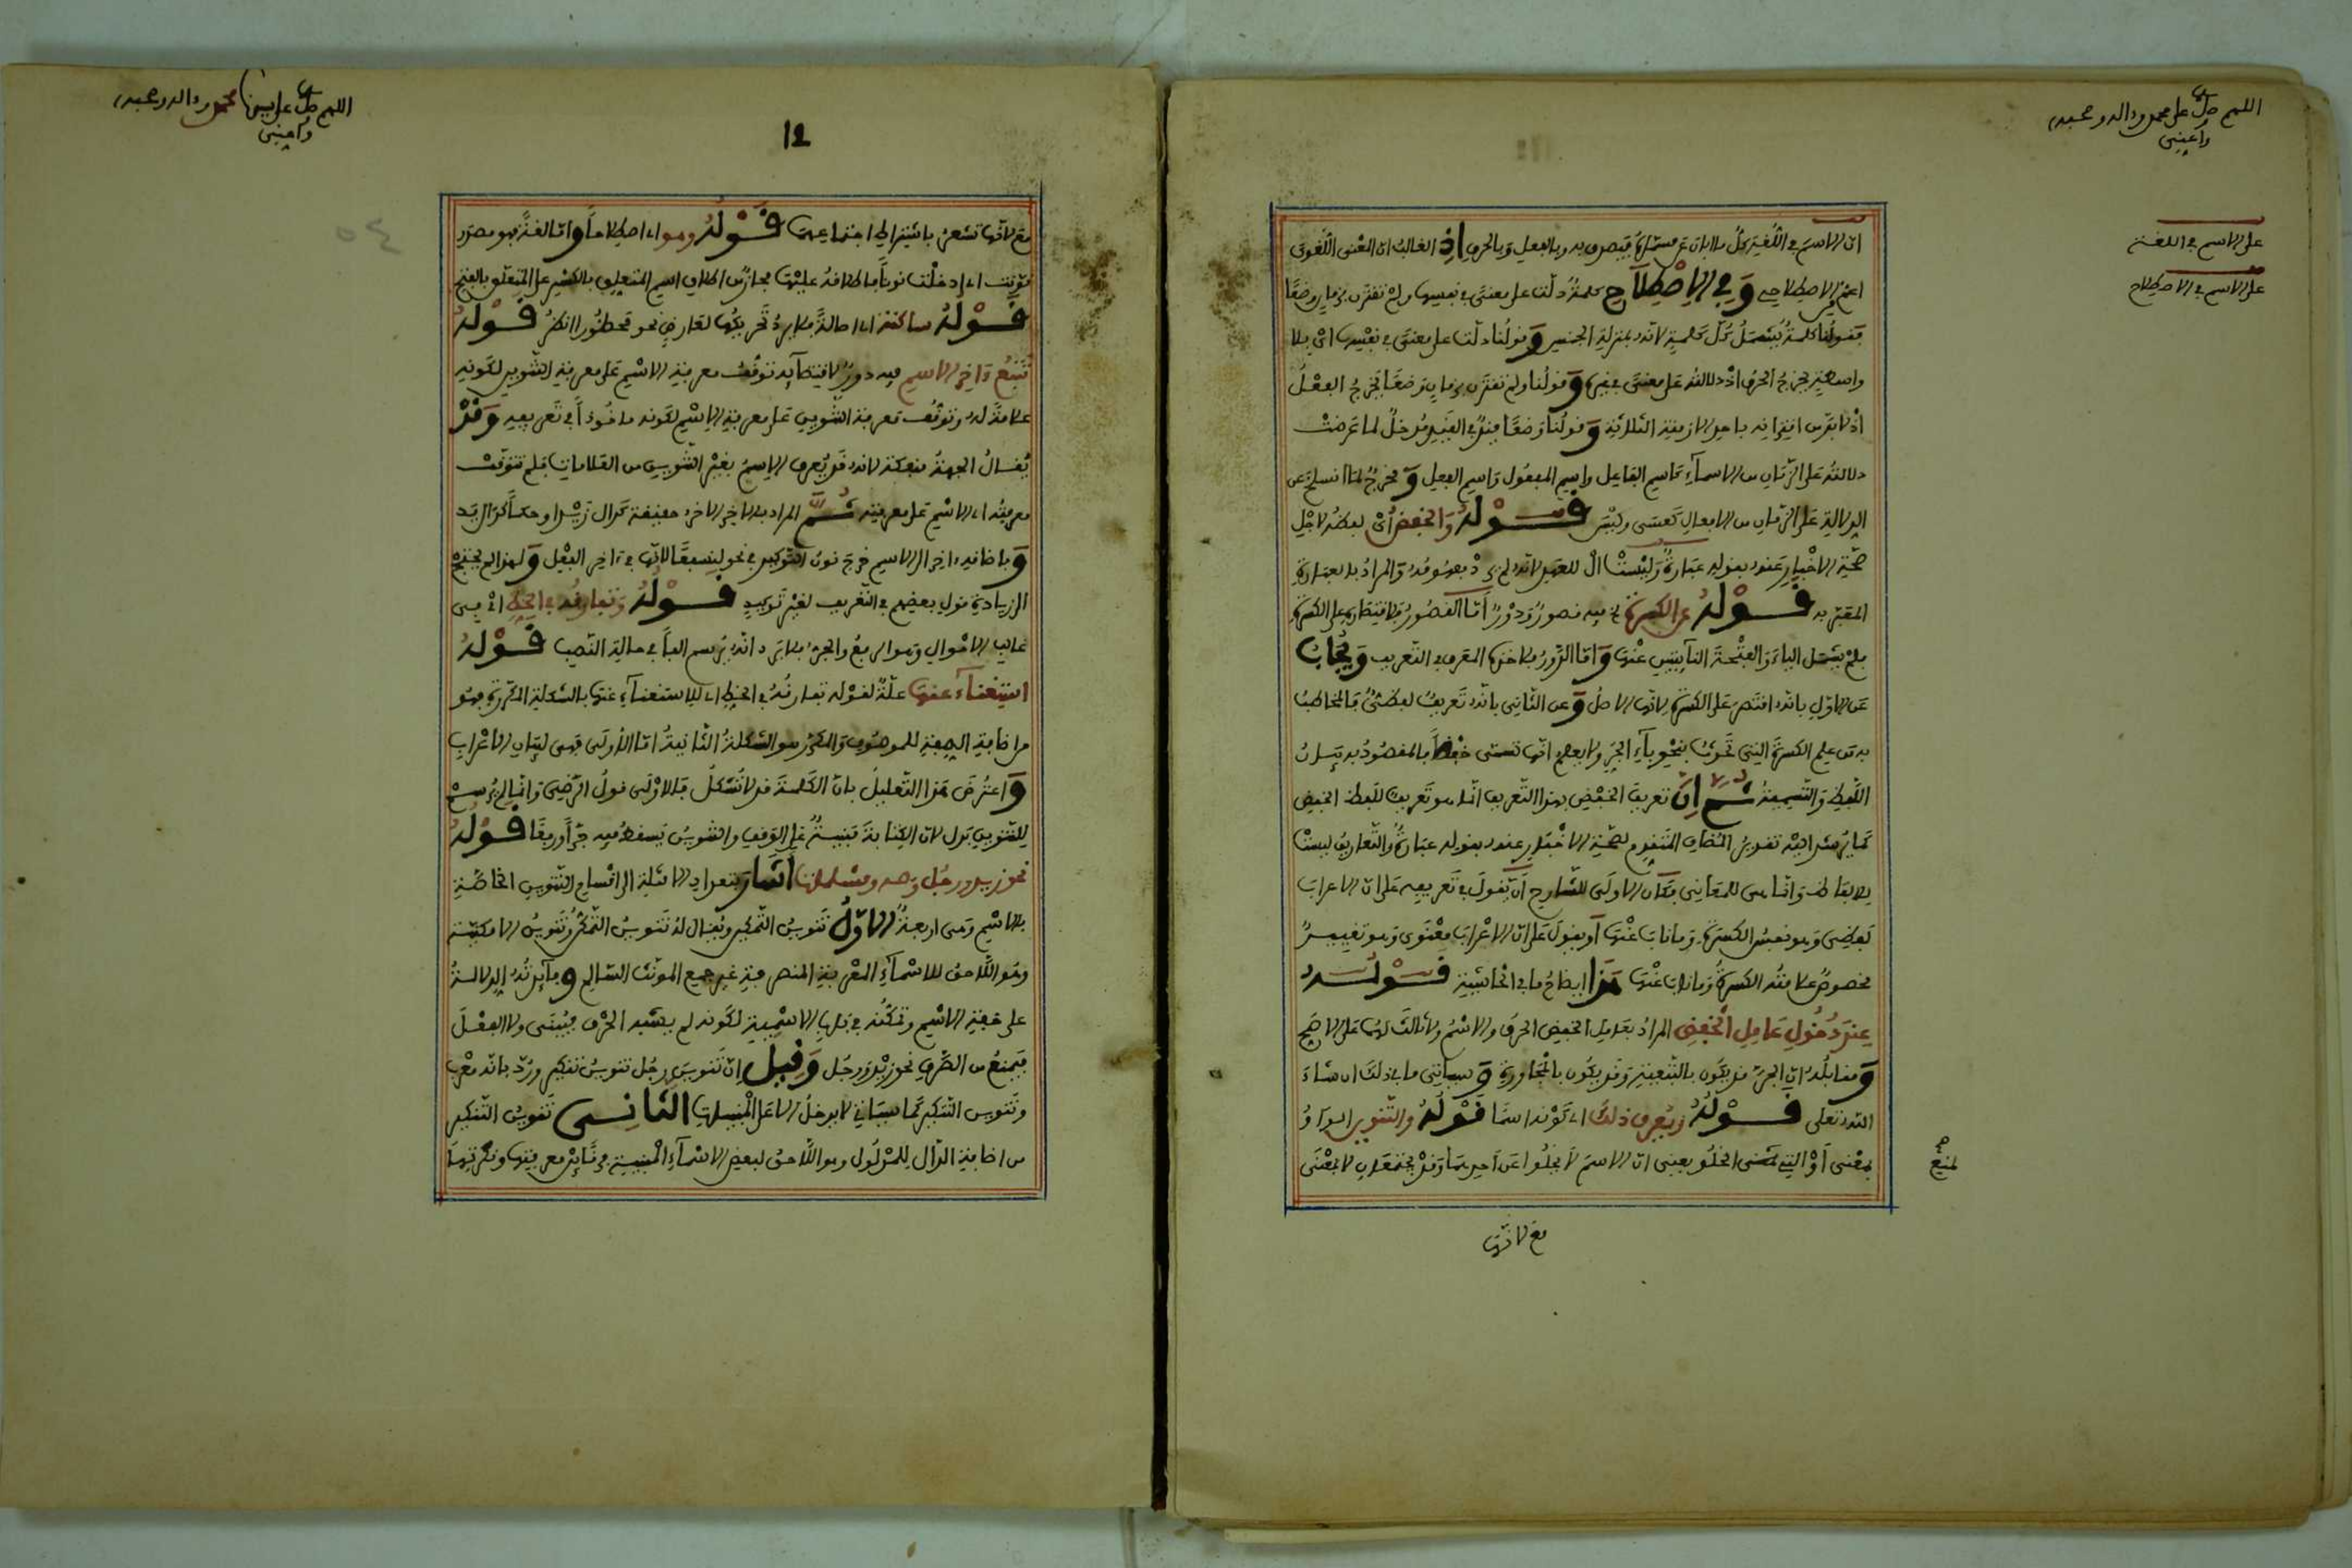 اللهم صل على محمد واله وصحبه
وأعني
على الاسم في اللغة
على الاسم في الاصطلاح
ان الاسم في اللغة كل ما ابان عن مسماه فيصدق به وبالفعل وبالحرف إذ الغالب ان المعنى اللغوي
اعم من الاصطلاحي وَفِي الاِصْطِلاَحِ كلمة دلت على معنى في نفسها ولم تقترن بزمان وضعا
فقولنا كلمة يشمل كل كلمة لانه بمنزلة الجنس وقولنا دلت على معنى في نفسها اي بلا
واسطة يخرج الحرف اذ دلالته على معنى في غيره وقولنا ولم تقترن بزمان وضعا يخرج الفعل
اذ لا بد من اقترانه باحد الازمنة الثلاثة وقولنا وضعا قيد في القيد مدخل لما عرضت
دلالته على الزمان من الاسماء كاسم الفاعل واسم المفعول واسم الفعل ومخرج لما انسلخ عن
الدلالة على الزمان من الافعال كعسى وليس قَوْلُهُ والخفض أي لفظه لاجل
صحة الاخبار عنه بقوله عبارة وليست ال للعهد لانه لم والمراد بالعبارة
المعبر به قَوْلُهُ عن الكسرة فيه قصور ودور أما القصور فلاقتصاره على الكسرة
فلم يشمل الياء والفتحة النائبتين عنها واما الدور فلاخذه المعرف في التعريف ويجاب
عن الاول بانه اقتصر على الكسرة لانها الاصل وعن الثاني بانه تعريف لفظي فالمخاطب
به من علم الكسرة التي تحدث بنحو باء الجر ولا يعلم انها تسمى خفضا فالمقصود به بيان
اللفظ والتسمية ثم إن تعريف الخفض بهذا التعريف انما هو تعريف للفظ الخفض
كما يرشد اليه تقدير المضاف المتقدم لصحة الاخبار عنه بقوله عبارة والتعاريف ليست
للالفاظ وانما هي للمعاني فكان الاولى للشارح أن يقول في تعريفه على ان الاعراب
لفظي وهو نفس الكسرة وما ناب عنها أو يقول على ان الاعراب معنوي وهو تغيير
مخصوص علامته الكسرة وما ناب عنها هذا ايضاح ما في الحاشية قَوْلُهُ
عند دخول عامل الخفض المراد بعامل الخفض الحرف والاسم ولا ثالث لهما على الاصح
ومقابله ان الجر قد يكون بالتبعية وقد يكون بالمجاورة وسياتي ما في ذلك ان شاء
الله تعلى قَوْلُهُ ويعرف ذلك اي كونه اسما قَوْلُهُ والتنوين الواو
بمعنى أو التي لمنع الخلو يعني ان الاسم لا يخلوا عن أحدهما وقد يجتمعان لا بمعنى
لمنع صح
مع لانها
اللهم صل على نبينا محمد واله وصحبه
وأعني
12
مع لانها تشعر باشتراط اجتماعهما قَوْلُهُ وهو اي اصطلاحا واما لغة فهو مصدر
نونت اي ادخلت نونا فاطلاقه عليها مجاز من اطلاق اسم المتعلق بالكسر على المتعلق بالفتح
قَوْلُهُ ساكنة اي اصالة فلا يرد تحريكها لعارض نحو محظورا انظر قَوْلُهُ
تتبع ءاخر الاسم فيه دور لاقتضائه توقف معرفة الاسم على معرفة التنوين لكونه
علامة له وتوقف معرفة التنوين على معرفة الاسم لكونه ماخوذا في تعريفه وَقَدْ
يقال الجهة منفكة لانه قد يعرف الاسم بغير التنوين من العلامات فلم تتوقف
معرفة الاسم على معرفته ثم المراد بالاخر الاخر حقيقة كدال زيد او حكما كدال يد
وباضافة ءاخر الى الاسم خرج نون التوكيد في نحو لنسفعا لانها في ءاخر الفعل ولهذا لم يحتج
الى زيادة قول بعضهم في التعريف لغير توكيد قَوْلُهُ وتفارقه في الخط اي في
غالب الاحوال وهو الرفع والجر فلا يرد انه يرسم الفا في حالة النصب قَوْلُهُ
استغناء عنها علة لقوله تفارقه في الخط اي للاستغناء عنها بالشكلة المكررة فهو
من اضافة الصفة للموصوف والمكرر هو الشكلة الثانية اما الاولى فهي لبيان الاعراب
واعترض هذا التعليل بان الكلمة قد لا تشكل فالاولى قول الرضي وانما لم يرسم
للتنوين بدل لان الكتابة مبنية على الوقف والتنوين يسقط فيه جرا ورفعا قَوْلُهُ
نحو زيد ورجل وصه ومسلمات أشار بتعداد الامثلة الى اقسام التنوين الخاصة
بالاسم وهي اربعة الأول تنوين التمكين ويقال له تنوين التمكن وتنوين الامكنية
وهو اللاحق للاسماء المعربة المنصرفة غير جمع المونث السالم وفائدته الدلالة
على خفة الاسم وتمكنه في باب الاسمية لكونه لم يشبه الحرف فيبنى ولا الفعل
فيمنع من الصرف نحو زيد ورجل وقيل ان تنوين رجل تنوين تنكير ورد بانه معرب
وتنوين التنكير كما سياتي لا يدخل الا على المبنيات الثاني تنوين التنكير
من اضافة الدال للمدلول وهو اللاحق لبعض الاسماء المبنية معرفتها ونكرتها